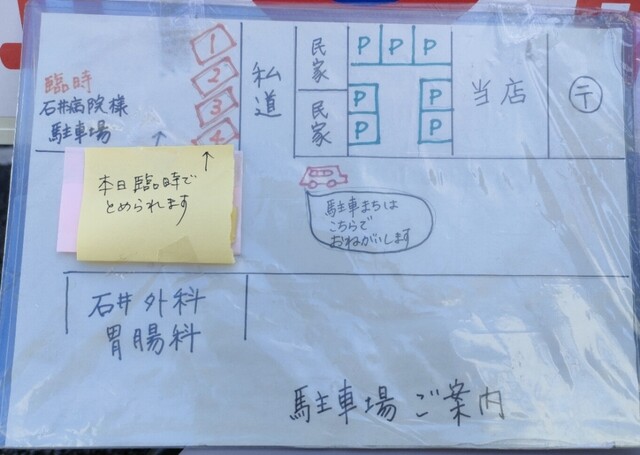 臨時
石井病院様
駐車場
1
2
3
4
私道
民家
民家
P P P
P P
P P
当店
〒
本日臨時で
とめられます
駐車まちは
こちらで
おねがいします
石井外科
胃腸科
駐車場ご案内